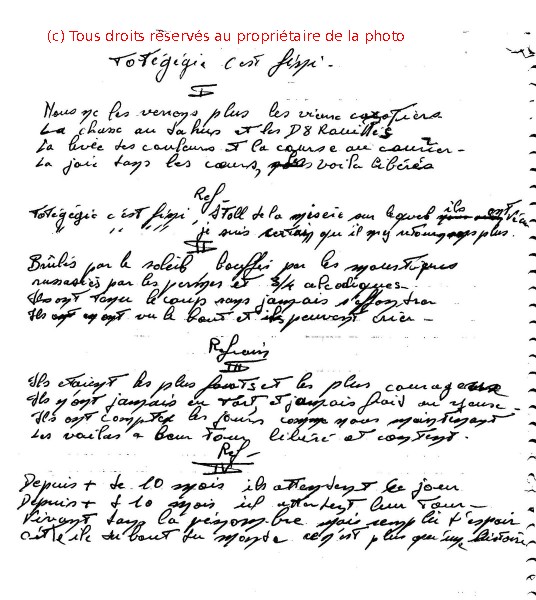 (c) Tous droits réservés au propriétaire de la photo
Totégégie c'est fini -
I
Nous ne les verrons plus les vieux cocotiers
La chasse au Tahus et les D8 Rouillés
La levée des couleurs et la course au courrier -
La joie dans les cœurs, voila libérés
Ref
Totégégie c'est fini, Atoll de la misère sur lequel ils ont
" " " " je suis certain qu'il n'y plus.
II
Brûlés par le soleil bouffés par les moustiques
par les et 3/4 alcooliques -
Ils ont tenu le coup sans jamais s'effondrer
Ils en ont vu le bout et ils peuvent crier -
Refrain
III
Ils étaient les plus forts et les plus courageux
Ils n'ont jamais eu tort, et jamais froid aux yeux -
Ils ont compté les jours comme nous maintenant
Les voilas a leur tour libéré et content.
Ref -
IV
Depuis + de 10 mois ils attendent ce jour
Depuis + d 10 mois ils attendent leur tour -
Vivant dans la pénombre mais remplis d'espoir
cette ile du bout du monde n'est plus qu'une histoire